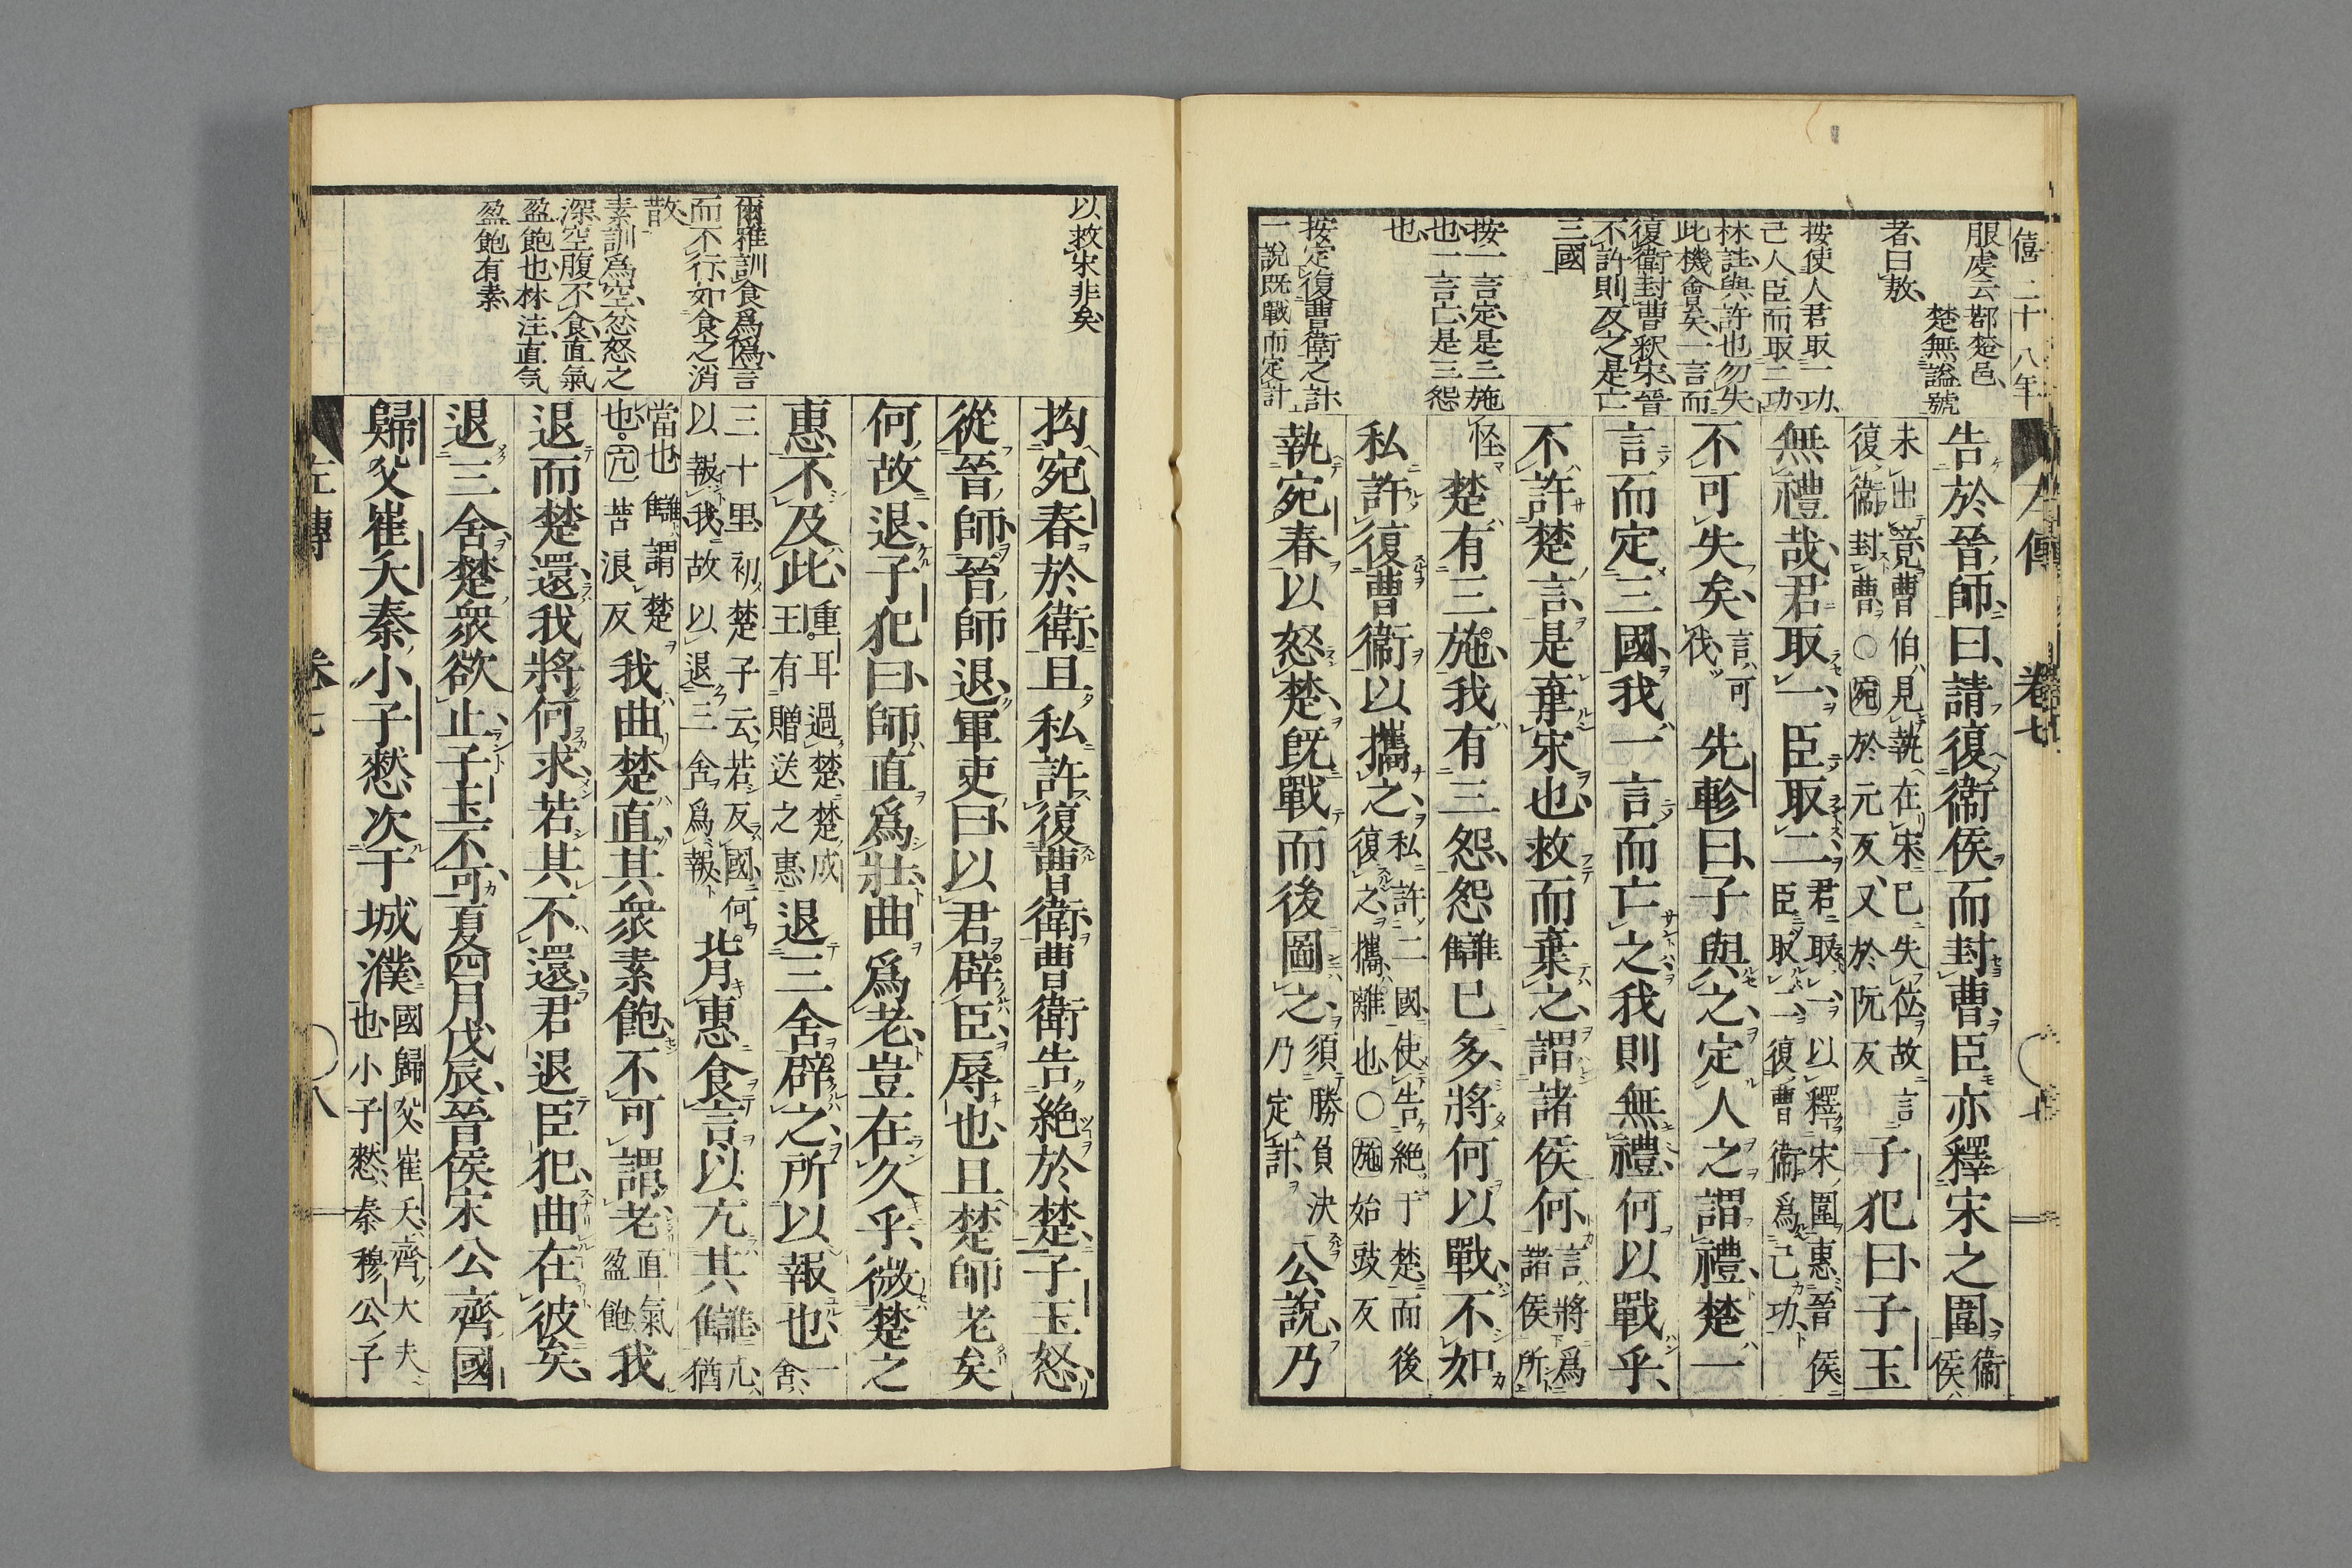 僖二十八年
左傳
卷七
七
服虔云鄀楚邑、
楚無謚號
者、曰敖、
按使人君取一功、
己人臣而取二功
林註與許也勿失
此機會矣一言而
復衛封曹釈宋晉
不許則反之是亡
三國
按一言定是三施
也一言亡是三怨
也
按定復曹衛之計
一説既戰而定計
告於晉師曰、請復衛侯而封曹、臣亦釋宋之圍、衞侯
未出竟曹伯見執在宋已失位故言
復衞封曹○宛於元反、又於阮反
子犯曰子玉
無禮哉君取一、臣取二、君取一以釋宋圍惠晉侯
臣取二復曹衞爲己功
不可失矣、言可伐
先軫曰、子與之、定人之謂禮、楚一
言而定三國、我一言而亡之我則無禮、何以戰乎、
不許楚言、是棄宋也、救而棄之、謂諸侯何、言將爲諸侯所
怪
楚有三施、我有三怨、怨讎已多、將何以戰、不如
私許復曹衞以攜之、私許二國使告絶于楚而後
復之攜離也○施始豉反
執宛春以怒楚、既戰而後圖之、須勝負決乃定計
公說、乃
以救宋非矣
爾雅訓食爲僞、言
而不行如食之消
散
素訓爲空、忿怒之
深空腹不食直氣
盈飽也林注直気
盈飽有素
拘宛春於衛、且私許復曹衛、曹衛告絶於楚、子玉怒、
從晉師、晉師退、軍吏曰、以君辟臣、辱也、且楚師老矣
何故退、子犯曰、師直爲壯、曲爲老、豈在久乎、微楚之
惠不及此、重耳過楚、楚成王有贈送之惠
退三舍辟之、所以報也、一舍、
三十里、初楚子云若反國何
以報我故以退三舍爲報
背惠食言、以亢其讎、亢猶
當也讎謂楚
也○亢苦浪反
我曲楚直、其衆素飽、不可謂老、直氣盈飽
我
退而楚還、我將何求、若其不還、君退臣犯、曲在彼矣、
退三舍、楚衆欲止、子玉不可、夏四月戊辰、晉侯宋公齊國
歸父崔夭秦小子憖次于城濮、國歸父、崔夭、齊大夫
也、小子憖、秦穆公子
左傳
卷七
八